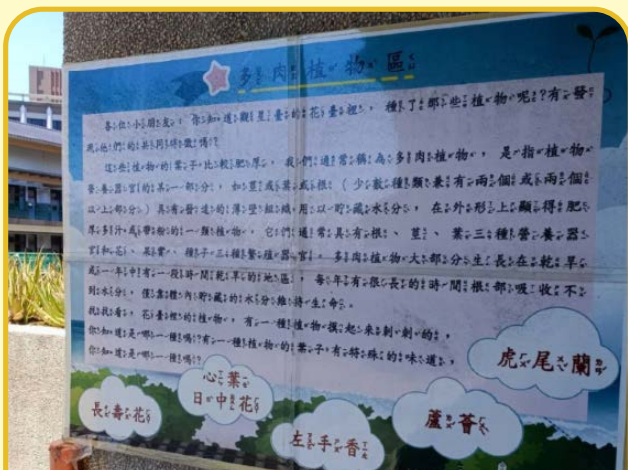 多肉植物區
各位小朋友，你知道觀星臺的花臺裡，種了哪些植物呢?有發
現他們的共同特徵嗎?
這些植物的葉子比較肥厚，我們通常稱為多肉植物，是指植物
營養器官的某一部分，如莖或葉或根（少數種類兼有兩個或兩個
以上部分）具有發達的薄壁組織用以貯藏水分，在外形上顯得肥
厚多汁或帶粉的一類植物。它們通常具有根、莖、葉三種營養器
官和花、果實、種子三種繁殖器官。多肉植物大部分生長在乾旱
或一年中有一段時間乾旱的地區，每年有很長的時間根部吸收不
到水分，僅靠體內貯藏的水分維持生命。
找找看，花臺裡的植物，有一種植物摸起來刺刺的，
你知道是哪一種嗎?有一種植物的葉子，有特殊的味道，
你知道是哪一種嗎?
虎尾蘭
心葉
日中花
長壽花
蘆薈
左手香